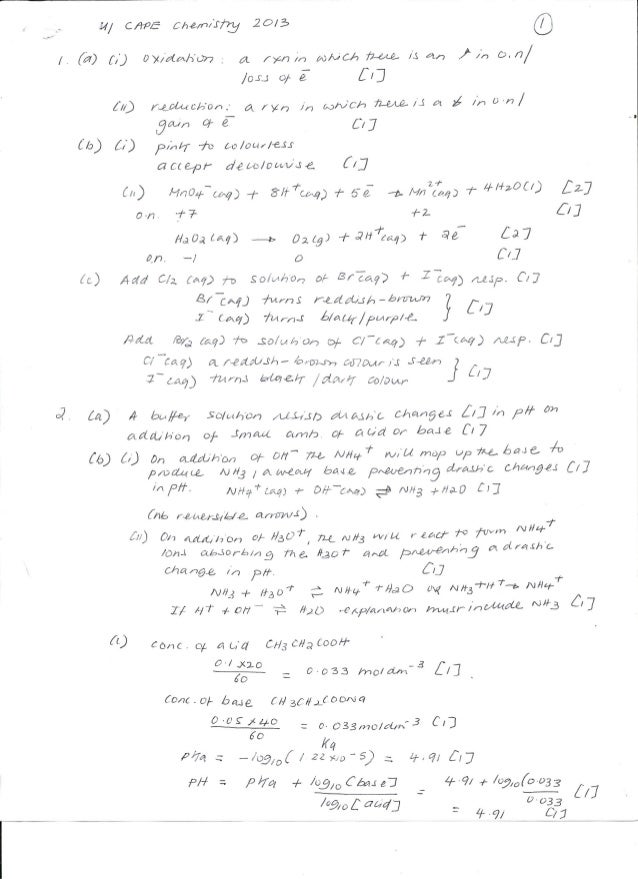 U1 CAPE Chemistry 2013 1
1. (a) (i) oxidation : a rxn in which there is an ↑ in o.n/
loss of e̅ [1]
(ii) reduction: a rxn in which there is a ↓ in o.n/
gain of e̅ [1]
(b) (i) pink to colourless
accept decolourise [1]
(ii) MnO4⁻(aq) + 8H⁺(aq) + 5e̅ → Mn²⁺(aq) + 4H2O(l) [2]
o.n. +7 +2 [1]
H2O2(aq) → O2(g) + 2H⁺(aq) + 2e̅ [2]
o.n. -1 0 [1]
(c) Add Cl2 (aq) to solution of Br⁻(aq) + I⁻(aq) resp. [1]
Br⁻(aq) turns reddish-brown
I⁻(aq) turns black/purple } [1]
Add Br2 (aq) to solution of Cl⁻(aq) + I⁻(aq) resp. [1]
Cl⁻(aq) a reddish-brown colour is seen
I⁻(aq) turns black / dark colour } [1]
2. (a) A buffer solution resists drastic changes [1] in pH on
addition of small amts. of acid or base [1]
(b) (i) On addition of OH⁻ the NH4⁺ will mop up the base to
produce NH3, a weak base preventing drastic changes [1]
in pH. NH4⁺(aq) + OH⁻(aq) ⇌ NH3 + H2O [1]
(nb reversible arrows).
(ii) On addition of H3O⁺, the NH3 will react to form NH4⁺
ions absorbing the H3O⁺ and preventing a drastic
change in pH. [1]
NH3 + H3O⁺ ⇌ NH4⁺ + H2O or NH3 + H⁺ → NH4⁺
If H⁺ + OH⁻ ⇌ H2O - explanation must include NH3 [1]
(c) conc. of acid CH3CH2COOH
0.1 x20
60 = 0.033 mol dm⁻³ [1].
conc. of base CH3CH2COONa
0.05 x 40
60 = 0.033moldm⁻³ [1]
Ka
pKa = -log10 (1 22 x10⁻⁵) = 4.91 [1]
pH = pKa + log10 [base] = 4.91 + log10 (0.033
log10 [acid] 0.033 [1]
= 4.91 [1]